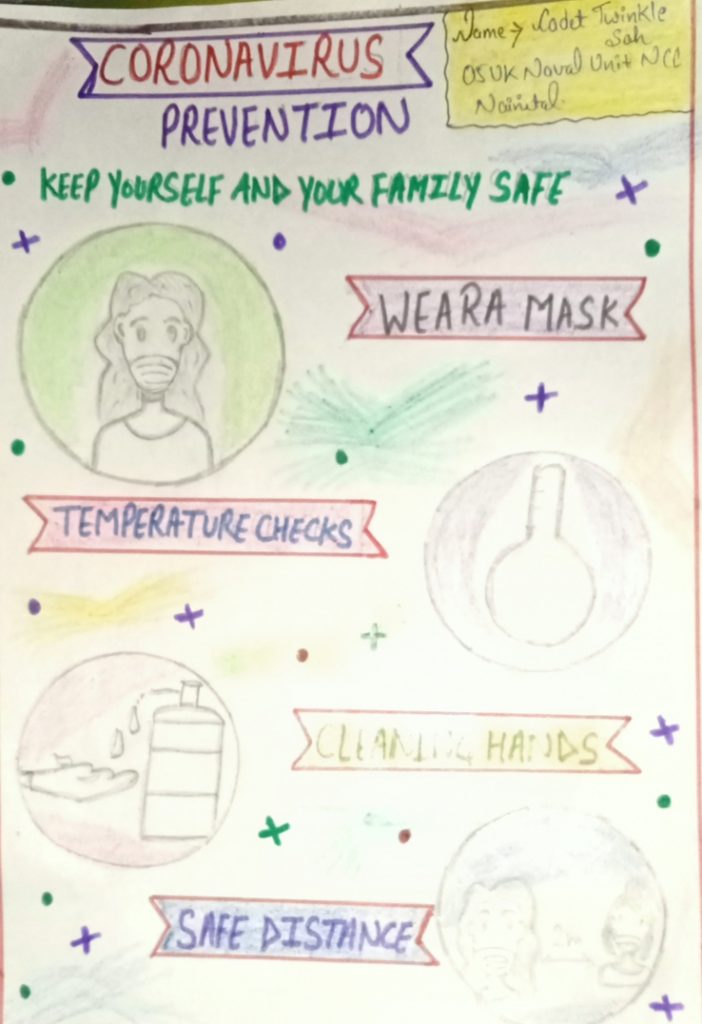 CORONAVIRUS
PREVENTION
Name → Cadet Twinkle
Sah
05 UK Naval Unit NCC
Nainital
• KEEP YOURSELF AND YOUR FAMILY SAFE
WEAR A MASK
TEMPERATURE CHECKS
CLEANING HANDS
SAFE DISTANCE
2m